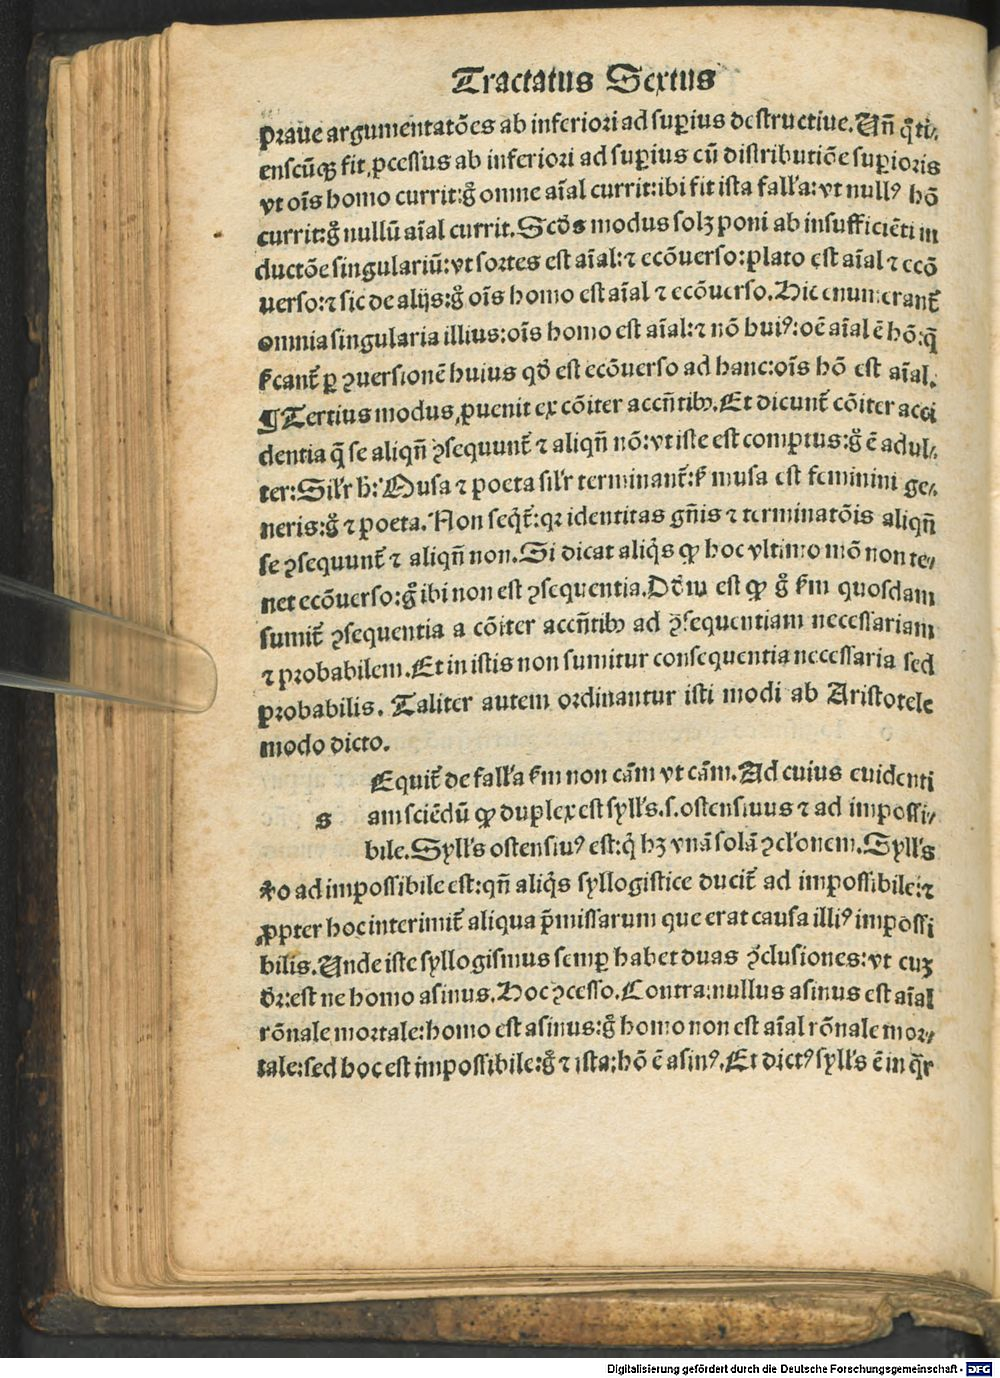 Tractatus Sextus
praue argumentatōes ab inferiori ad superius destructiue. Uñ q̄ti⸗
enscūqꝫ fit ꝓcessus ab inferiori ad suꝑius cū distributiōe suꝑioris
vt oīs homo currit: gͦ omne aīal currit: ibi fit ista fall'a: vt nullꝰ hō
currit: gͦ nullū aīal currit. Scd̄s modus solꝫ poni ab insufficiēti in
ductōe singulariū: vt sortes est aīal: ⁊ ecōuerso: plato est aīal ⁊ ecō
uerso: ⁊ sic de alijs: gͦ oīs homo est aīal ⁊ ecōuerso. Hic enumerant᷑
omnia singularia illius: oīs homo est aīal: ⁊ nō huiꝰ: oē aīal ē hō: q̄
ſcant᷑ ꝑ ꝯuersionē huius qd̄ est ecōuerso ad hanc: oīs hō est aīal.
¶ Tertius modus ꝓuenit ex cōiter accñtibꝰ. Et dicunt᷑ cōiter acci
dentia q̄ se aliqñ ꝯsequunt᷑ ⁊ aliqñ nō: vt iste est comptus: gͦ ē adul⸗
ter: Sil'r h̄: Musa ⁊ poeta sil'r terminant᷑: ſ musa est feminini ge⸗
neris: gͦ ⁊ poeta. Non seqͥt᷑: qꝛ identitas gñis ⁊ terminatōis aliqñ
se ꝯsequunt᷑ ⁊ aliqñ non. Si dicat aliqͥs ꝙ hoc vltimo mō non te⸗
net ecōuerso: gͦ ibi non est ꝯsequentia. Dd̄m est ꝙ gͦ ſm quosdam
sumit᷑ ꝯsequentia a cōiter accñtibꝰ ad ꝯsequentiam necessariam
⁊ probabilem. Et in istis non sumitur consequentia necessaria sed
probabilis. Taliter autem ordinantur isti modi ab Aristotele
modo dicto.
Equit᷑ de fall'a ſm non cām vt cām. Ad cuius euidenti
s am sciēdū ꝙ duplex est syll's. s. ostensiuus ⁊ ad impossi⸗
bile. Syll's ostensiuꝰ est: qͥ hꝫ vnā solā ꝯcl'onem. Syll's
ꝟo ad impossibile est: qñ aliqͥs syllogistice ducit᷑ ad impossibile: ⁊
ꝓpter hoc interimit᷑ aliqua p̄missarum que erat causa illiꝰ impossi
bilis. Unde iste syllogismus semꝑ habet duas ꝯclusiones: vt cuꝫ
dr̄: est ne homo asinus. Hoc ꝯcesso. Contra: nullus asinus est aīal
rōnale mortale: homo est asinus: gͦ homo non est aīal rōnale mor⸗
tale: sed hoc est impossibile: gͦ ⁊ ista: hō ē asinꝰ. Et dictꝰ syll's ē in q̄r
Digitalisierung gefördert durch die Deutsche Forschungsgemeinschaft - DFG